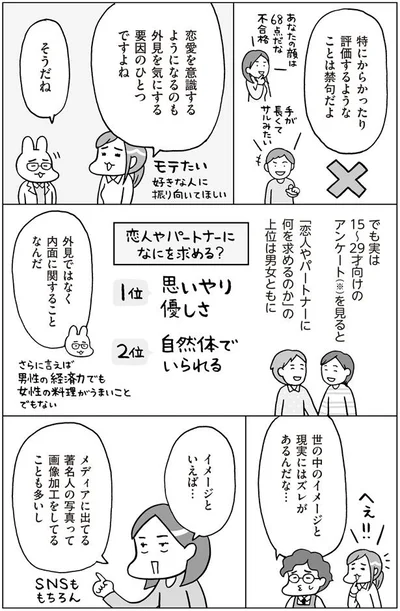 特にからかったり
評価するような
ことは禁句だよ
あなたの顔は
68点だな
不合格
手が
長くて
サルみたい
恋愛を意識する
ようになるのも
外見を気にする
要因のひとつ
ですよね
モテたい
好きな人に
振り向いてほしい
そうだね
でも実は
15〜29才向けの
アンケート(※)を見ると
「恋人やパートナーに
何を求めるのか」の
上位は男女ともに
恋人やパートナーに
なにを求める?
1位 思いやり
優しさ
2位 自然体で
いられる
外見ではなく
内面に関すること
なんだ
さらに言えば
男性の経済力でも
女性の料理がうまいこと
でもない
へぇ!!
世の中のイメージと
現実にはズレが
あるんだな…
イメージと
いえば…
メディアに出てる
著名人の写真って
画像加工をしてる
ことも多いし
SNSも
もちろん